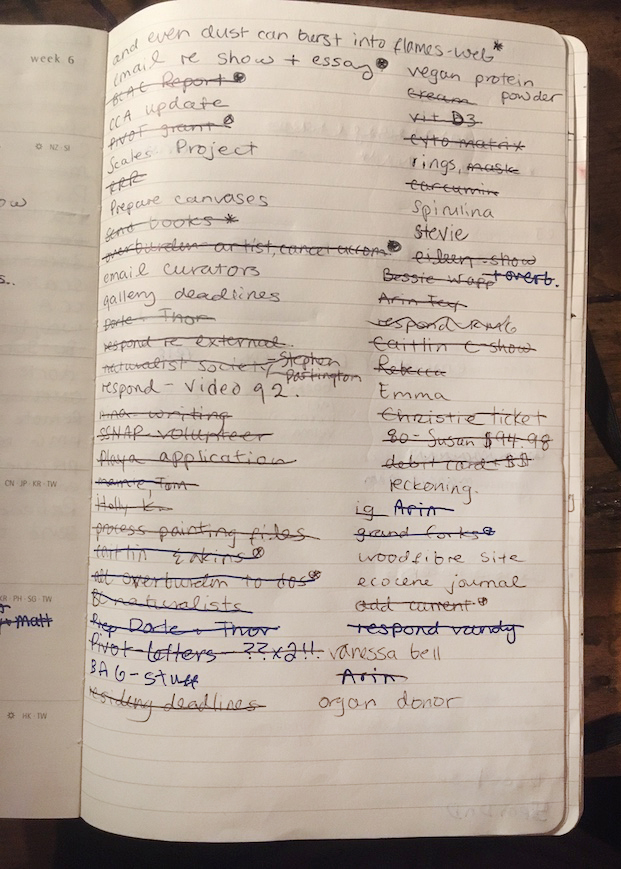 week 6
NZ · SI
CN · JP · KR · TW
KR · PH · SG · TW
+ Matt
HK · TW
and even dust can burst into flames-web*
email re show + essay
BCAC Report
CCA update
PIVOT grant
Scales Project
Prepare canvases
send books *
overburden artist, cancel accom.
email curators
gallery deadlines
Dorte + Thor
respond re external.
naturalist society - Stephen
Partington
respond - video q 2.
nina writing
SSNAP volunteer
playa application
Tom
Holly K.
process painting files
caitlin eakins
all overburden to dos*
naturalists
Prep Dorte + Thor
Pivot letters - ??x2!!
BAG - stuff
residency deadlines
vegan protein
powder
cream
vit D3
cyto matrix
rings, mask
curcumin
spirulina
stevie
eileen - show
+ overb.
Bessie Wapp
Arin
respond
Caitlin C show
Rebecca
Emma
Christie ticket
80 - Susan $94.98
debit card + $$
reckoning.
ig Arin
grand forks
woodfibre site
ecocene journal
add current
respond vandy
vanessa bell
Arin
organ donor